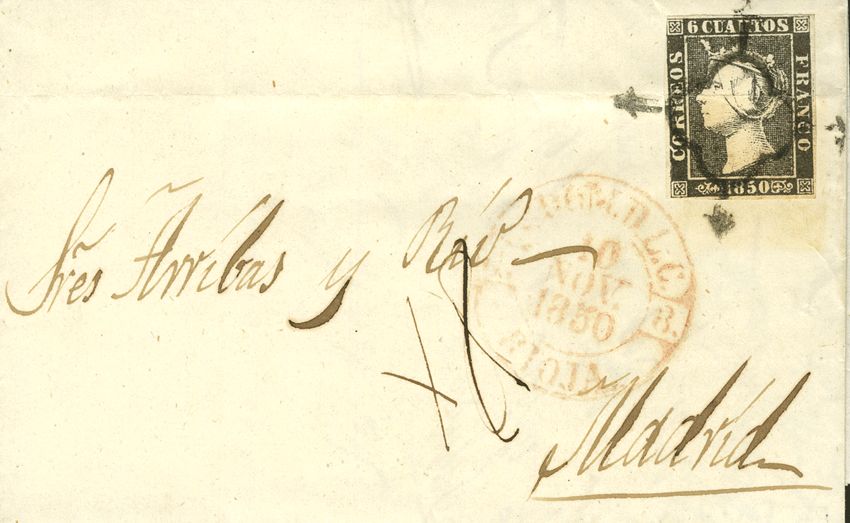 6 CUARTOS
CORREOS
FRANCO
1850
Sres Arribas y
10
NOV.
1850
8.
RIOJA
Madrid